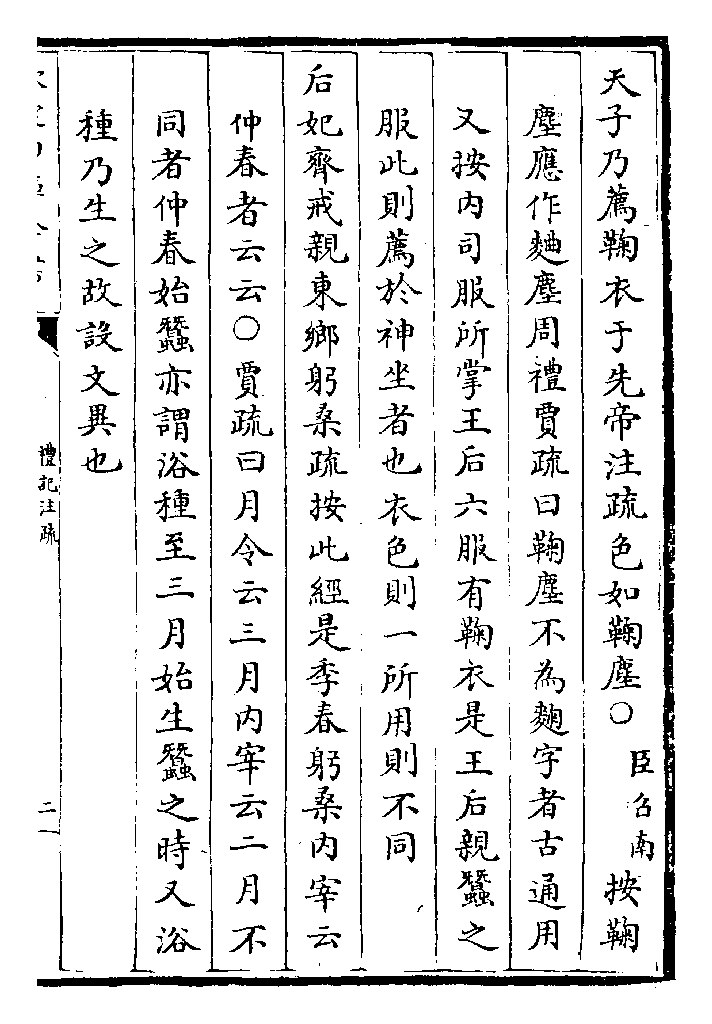 天子乃薦鞠衣于先帝注疏色如鞠塵○臣召南按鞠
塵應作麯塵周禮賈疏曰鞠塵不為麴字者古通用
又按内司服所掌王后六服有鞠衣是王后親蠶之
服此則薦於神坐者也衣色則一所用則不同
后妃齊戒親東鄉躬桑疏按此經是季春躬桑内宰云
仲春者云云○賈疏曰月令云三月内宰云二月不
同者仲春始蠶亦謂浴種至三月始生蠶之時又浴
種乃生之故設文異也
禮記注疏